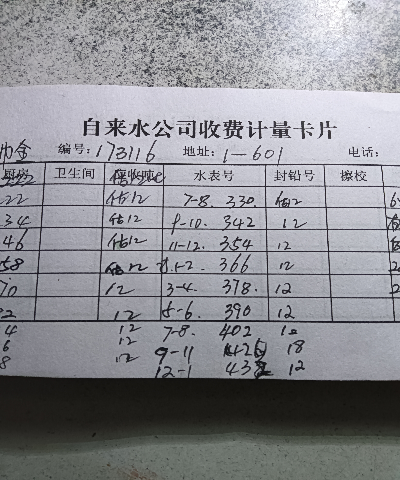 自来水公司收费计量卡片
金 编号:173116 地址:1-601 电话:
厨房 卫生间 应收吨 水表号 封铅号 擦校
22 估12 7-8. 330. 估12
34 估12 9-10. 342 12
46 估12 11-12. 354 12
58 估12 1-2 366 12
70 12 3-4. 378. 12
82 12 5-6. 390 12
4 12 7-8. 402 12
6 12 9-11 420 18
8 12 12-1 432 12